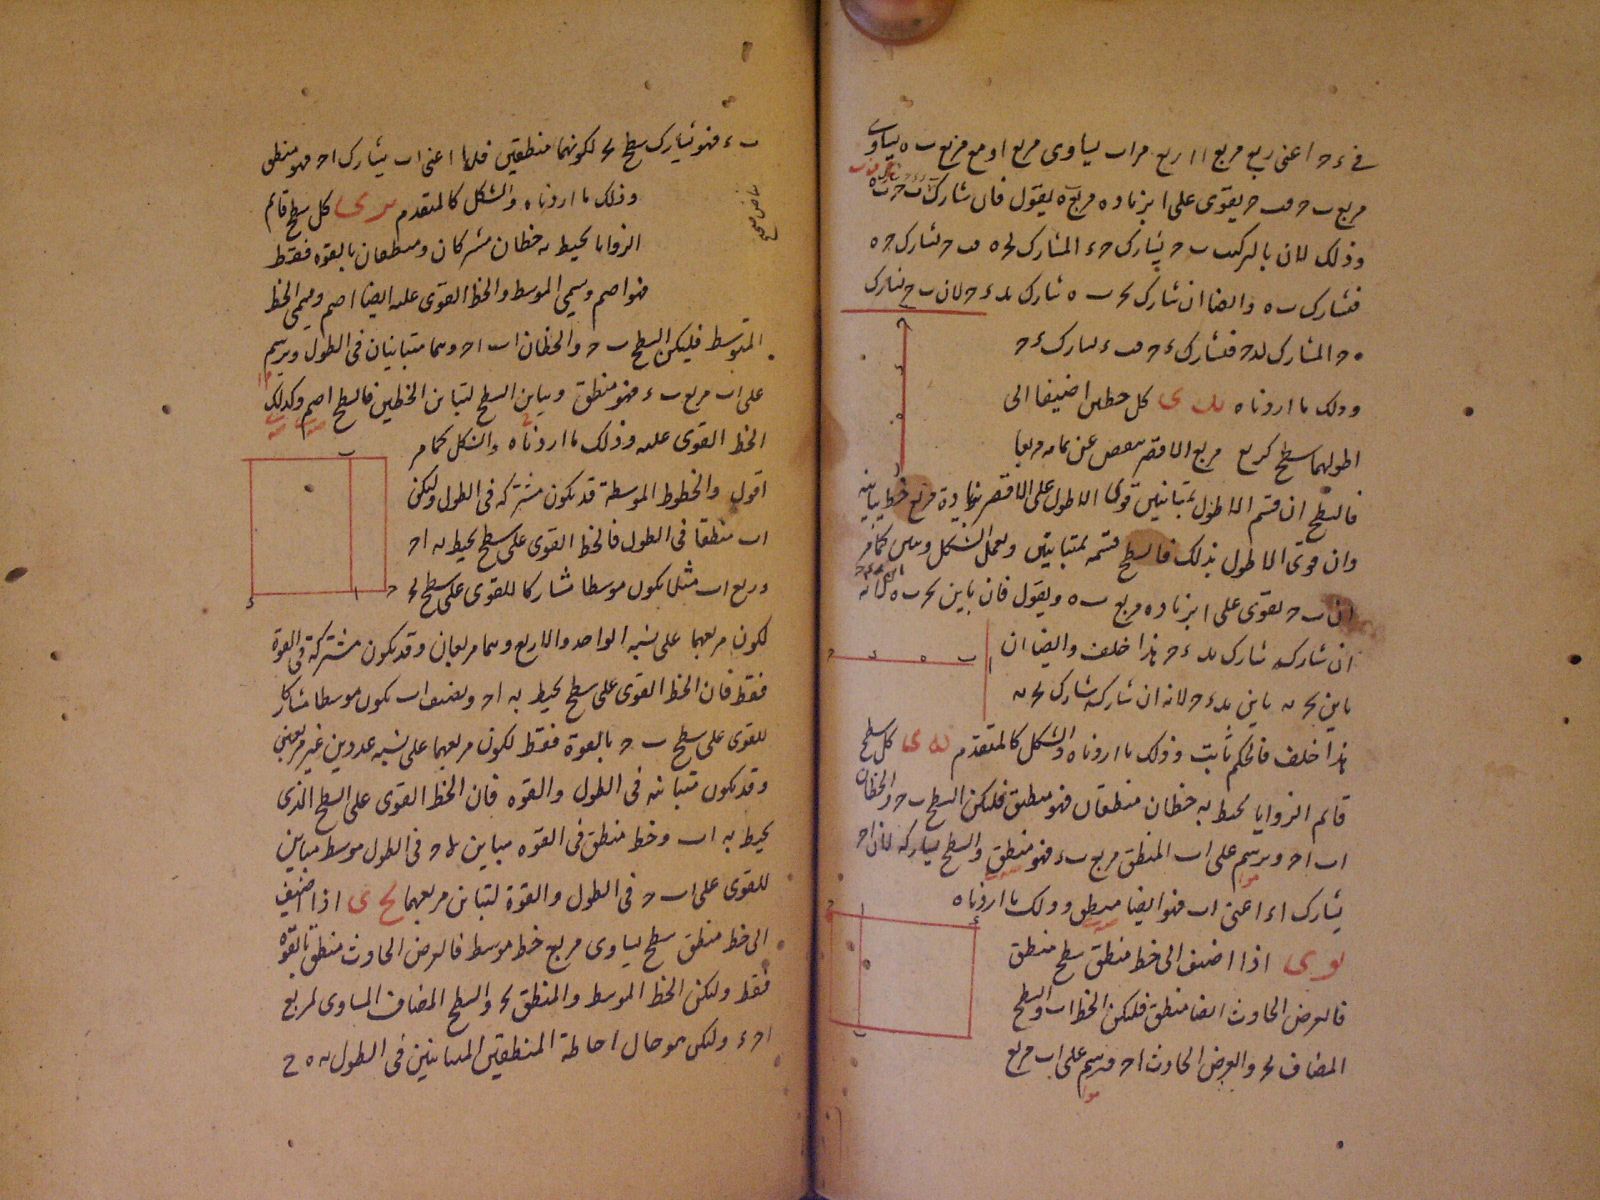 في ء ح اعنى ربع مربع ا اربع مرات يساوى مربع ا ومع مربع ب ه يساوى
مربع ب ح ف ب ح يقوى على ا بزيادة مربع ه ب ونقول فان شارك ب ح ب ه
وذلك لان بالتركيب ب ح يشارك ح ء المشارك لح ه ف ب ح يشارك ح ه
فيشارك ب ه وايضا ان شارك ب ح ب ه شارك ب ء ء ح لان ب ح يشارك
ه ح المشارك لء ح فيشارك ء ح ف ب ء يشارك ء ح
وذلك ما اردناه يد ى كل خطين اضيف الى
اطولهما سطح كربع مربع الاقصر ينقص عن تمامه مربعا
فالسطح ان قسم الاطول بمتباينين قوى الاطول على الاقصر بزيادة مربع خط يباينه
وان قوى الاطول بذلك فالسطح قسمه بمتباينين ونعمل الشكل ونبين كما مر
ان ب ح يقوى على ا بزيادة مربع ب ه ونقول فان باين ب ح ب ه لانه
ان شاركه شارك ب ء ء ح هذا خلف وايضا ان
باين ب ح ب ه باين ب ء ء ح لانه ان شاركه شارك ب ح ب ه
هذا خلف فالحكم ثابت وذلك ما اردناه والشكل كالمتقدم يه ى كل سطح
قائم الزوايا يحيط به خطان منطقان فهو منطق فليكن السطح ب ح والخطان
اب اح ونرسم على اب المنطق مربع ب ء فهو منطق والسطح يشاركه لان اح
يشارك اء اعنى اب فهو ايضا منطق وذلك ما اردناه
يو ى اذا اضيف الى خط منطق سطح منطق
فالعرض الحادث ايضا منطق فليكن الخط اب والسطح
المضاف ب ح والعرض الحادث اح ونرسم على اب مربع
ب ء فهو يشارك سطح ب ح لكونهما منطقين فاء اعنى اب يشارك اح فهو منطق
وذلك ما اردناه والشكل كالمتقدم يز ى كل سطح قائم
الزوايا يحيط به خطان مشتركان ومنطقان بالقوه فقط
فهو اصم ويسمى الموسط والخط القوى عليه ايضا اصم ويسمى الخط
المتوسط فليكن السطح ب ح والخطان اب اح وهما متباينان في الطول ونرسم
على اب مربع ب ء فهو منطق ويباين السطح لتباين الخطين فالسطح اصم وكذلك
الخط القوى عليه وذلك ما اردناه والشكل كما مر
اقول والخطوط الموسطة قد تكون مشتركه فى الطول وليكن
اب منطقا فى الطول فالخط القوى على سطح يحيط به اح
وربع اب مثلا يكون موسطا مشاركا للقوى على سطح ب ح
لكون مربعهما على نسبه الواحد والاربع وهما مربعان وقد تكون مشتركة فى القوة
فقط فان الخط القوى على سطح يحيط به اح ونصف اب يكون موسطا مشاركا
للقوى على سطح ب ح بالقوة فقط لكون مربعهما على نسبه عددين غير مربعين
وقد تكون متباينه فى الطول والقوه فان الخط القوى على السطح الذى
يحيط به اب وخط منطق فى القوه مباين لاح فى الطول موسط مباين
للقوى على ب ح فى الطول والقوة لتباين مربعهما يح ى اذا اضيف
الى خط منطق سطح يساوى مربع خط موسط فالعرض الحادث منطق بالقوه
فقط وليكن الخط الموسط ا والمنطق ب ح والسطح المضاف المساوى لمربع
ا ح ء وليكن هو حال احاطة المنطقين المتباينين فى الطول به ه ح